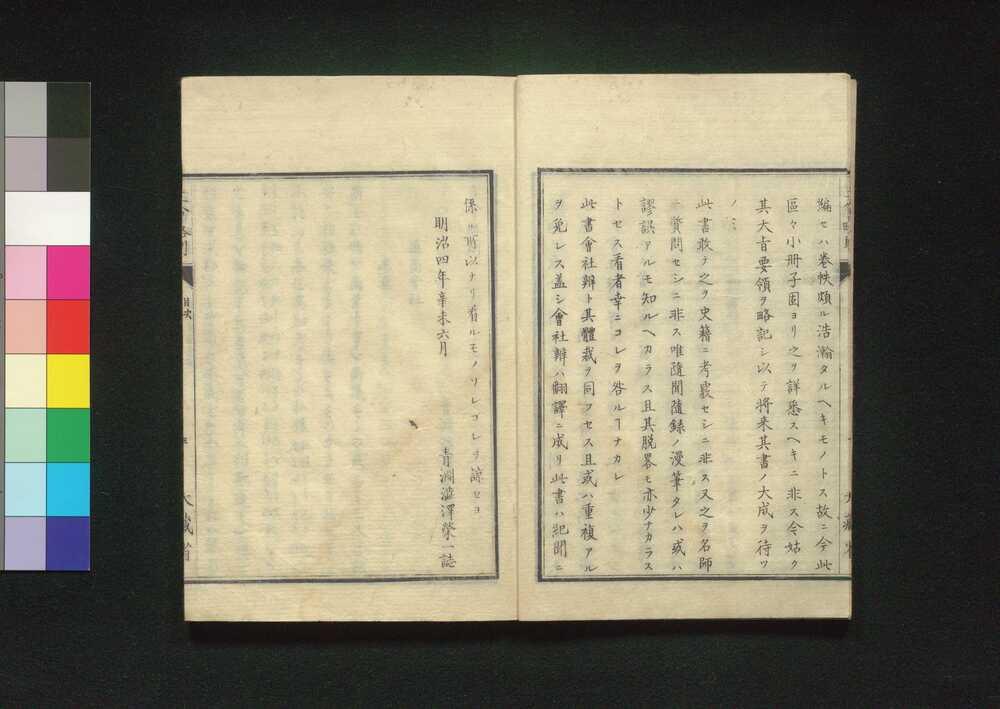 編セハ卷帙頗ル浩瀚タルヘキモノトス故ニ今此
區々小册子固ヨリ之ヲ詳悉スヘキニ非ス今姑ク
其大旨要領ヲ略記シ以テ將来其書ノ大成ヲ待ツ
ノミ
此書敢テ之ヲ史籍ニ考覈セシニ非ス又之ヲ名師
ニ質問セシニ非ス唯隨聞隨錄ノ漫筆タレハ或ハ
謬誤アルモ知ルヘカラス且其脱畧モ亦少ナカラス
トセス看者幸ニコレヲ咎ルヿナカレ
此書會社辨ト其體裁ヲ同フセス且或ハ重複アル
ヲ免レス盖シ會社辨ハ翻譯ニ成リ此書ハ紀聞ニ
係ル所以ナリ看ルモノソレコレヲ諒セヨ
明治四年辛未六月
青淵澁澤榮一誌
目次
大藏省